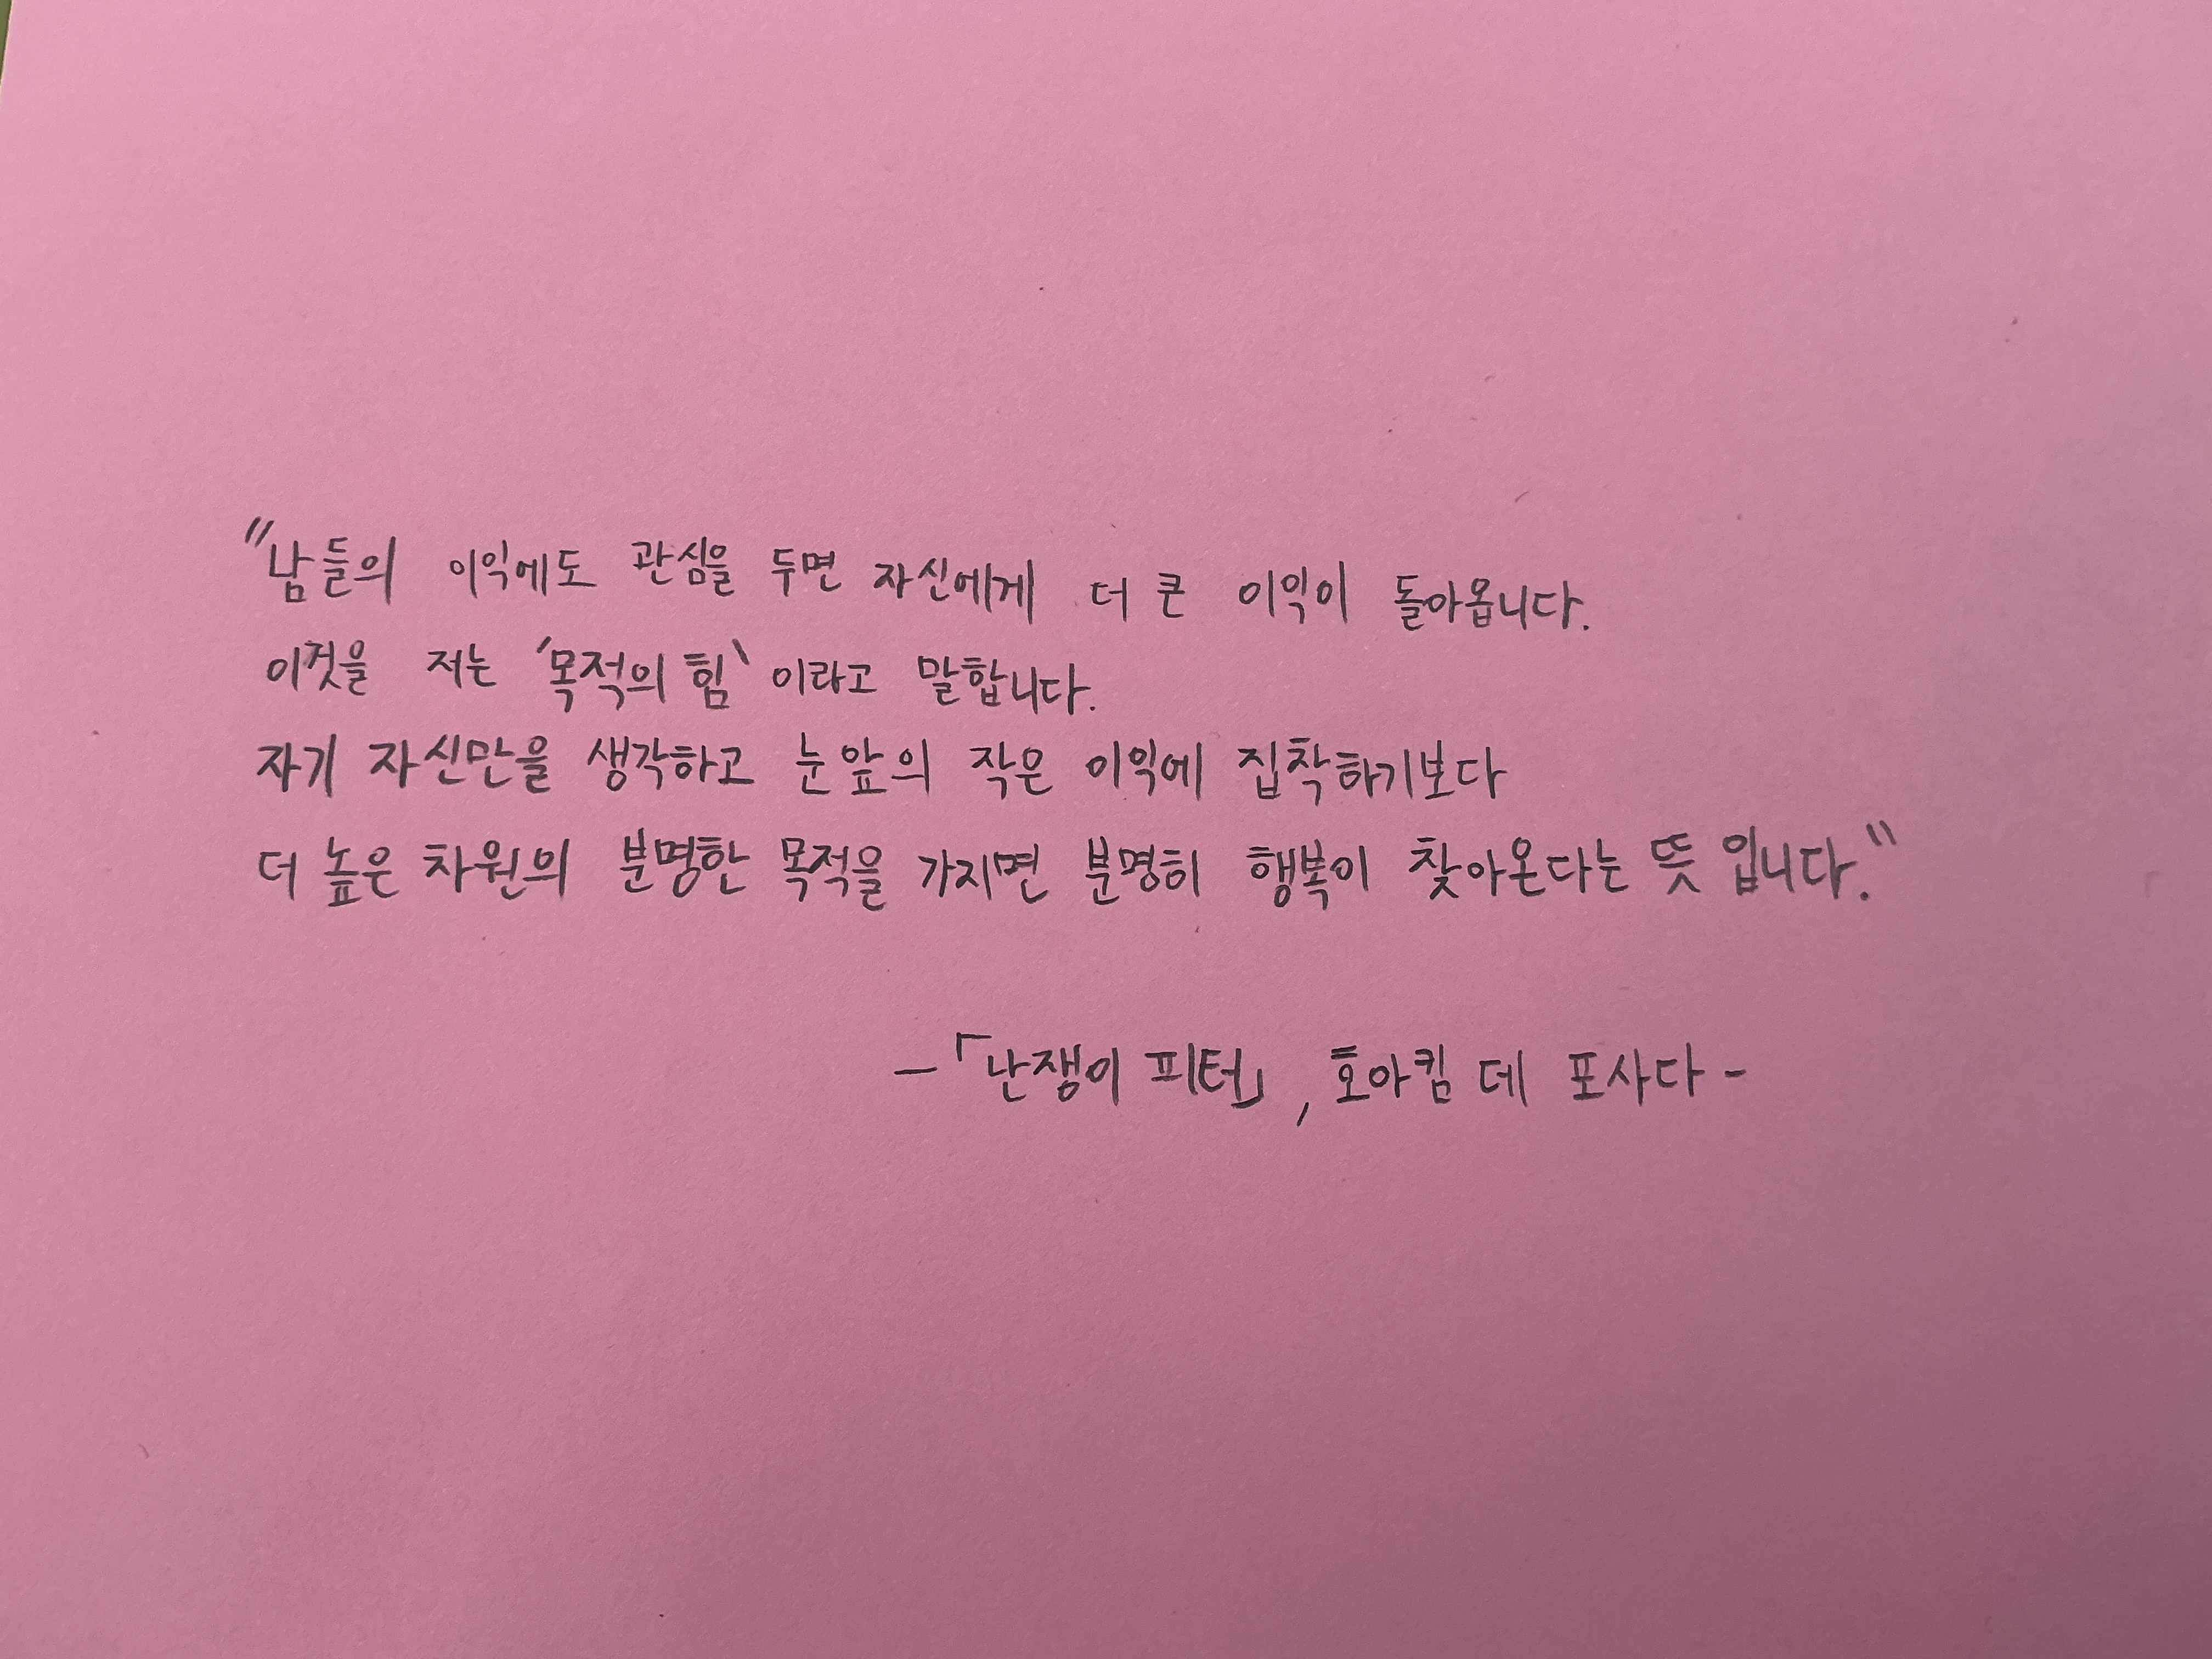 "남들의 이익에도 관심을 두면 자신에게 더 큰 이익이 돌아옵니다.
이것을 저는 '목적의 힘'이라고 말합니다.
자기 자신만을 생각하고 눈앞의 작은 이익에 집착하기보다
더 높은 차원의 분명한 목적을 가지면 분명히 행복이 찾아온다는 뜻 입니다."
-「난쟁이 피터」, 호아킴 데 포사다-